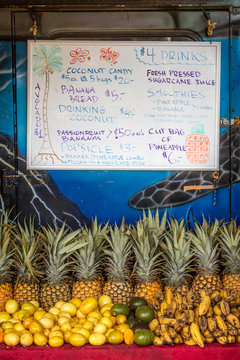 AVOCADO $1
COCONUT CANDY
$20-
BANANA BREAD $5-
DRINKING COCONUT $5-
PASSIONFRUIT / $.50 each
BANANAS
POPSICLE $3-
$4 DRINKS
FRESH PRESSED
SUGARCANE JUICE
SMOOTHIES
-PINEAPPLE
-BANANA
CUT BAG OF PINEAPPLE
$6-